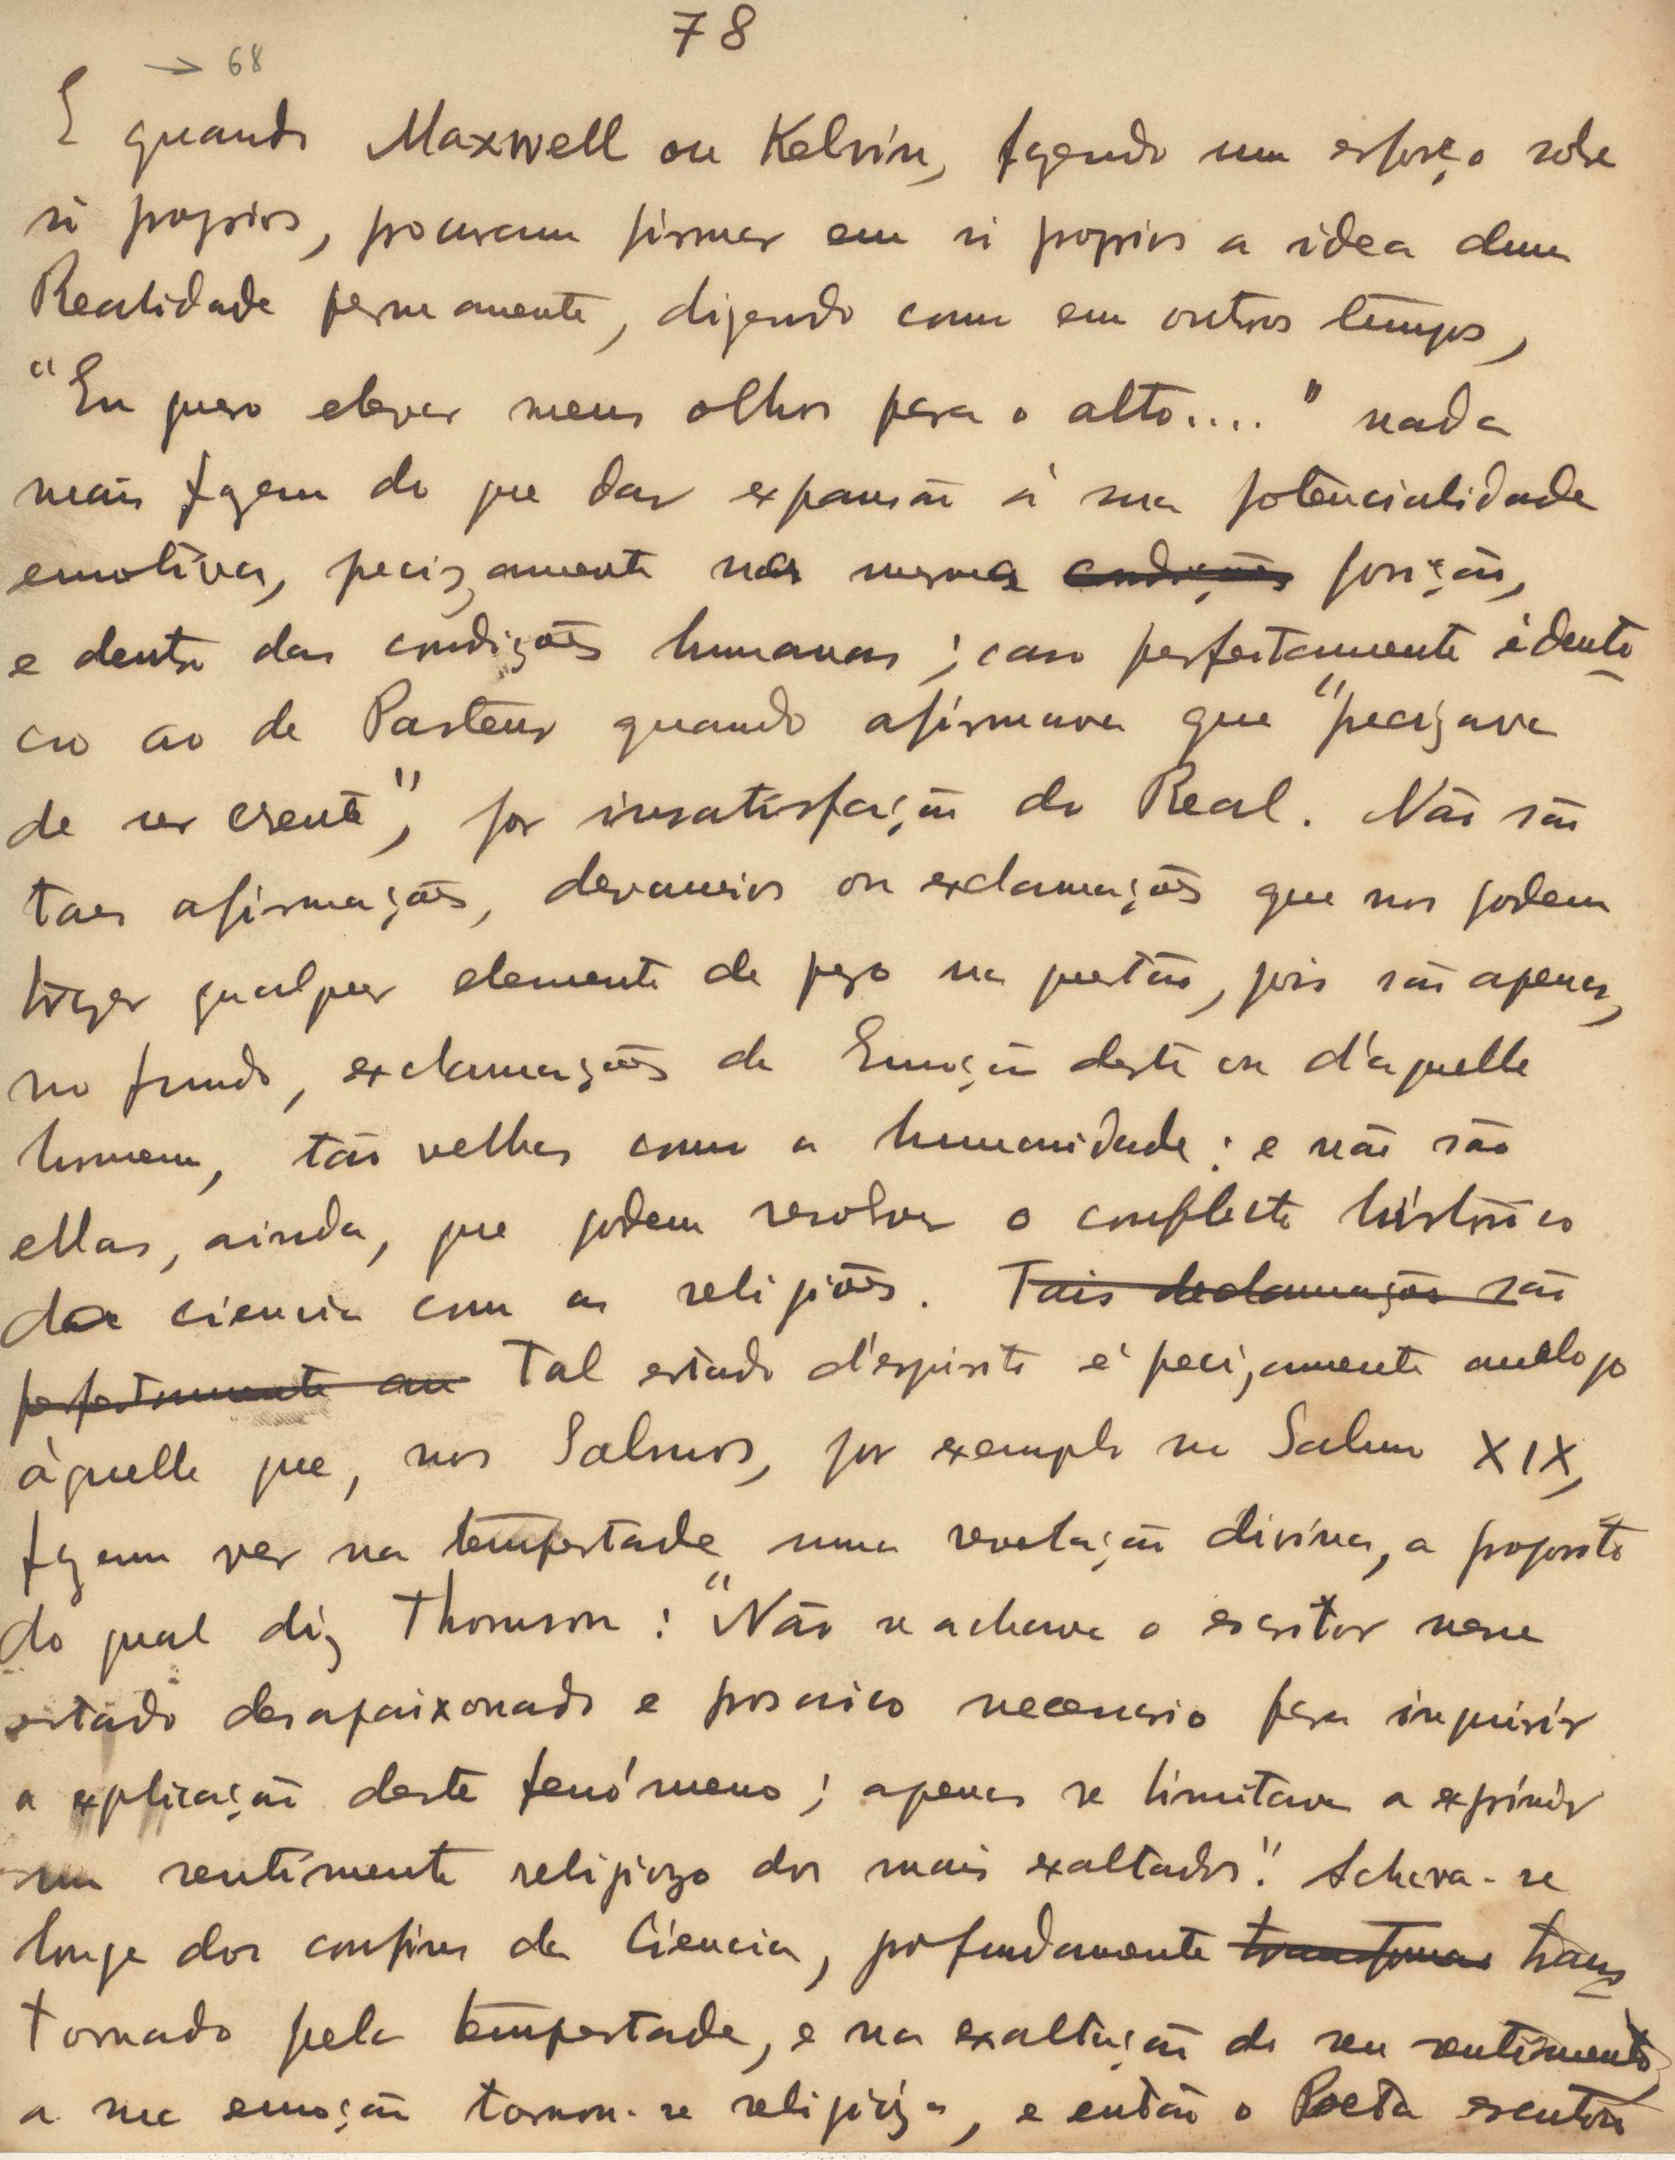 78
→ 68
E quando Maxwell ou Kelvin, fazendo um esforço sobre
si proprios, procuram firmar em si proprios a idea duma
Realidade permanente, dizendo como em outros tempos,
"Eu quero elevar meus olhos para o alto...." nada
mais fazem do que dar expansão á sua potencialidade
emotiva, precizamente na mesma condições posição,
e dentro das condições humanas; caso perfeitamente identi
co ao de Pasteur quando afirmava que "precizava
de ser crente", por insatisfação do Real. Não são
taes afirmações, devaneios ou exclamações que nos podem
trazer qualquer elemento de pezo na questão, pois são apenas,
no fundo, exclamações da Emoção deste ou d'aquelle
homem, tão velhas como a humanidade: e não são
ellas, ainda, que podem resolver o conflicto histórico
da ciencia com as religiões. Tais declamações são
perfeitamente an Tal estado d'espirito é precizamente analogo
àquelle que, nos Salmos, por exemplo no Salmo XIX,
fazem ver na tempestade uma revelação divina, a proposito
do qual diz Thomson: "Não se achava o escritor nesse
estado desapaixonado e prosaico necessario para inquirir
a explicação deste fenómeno; apenas se limitava a exprimir
um sentimento religiozo dos mais exaltados". Achava-se
longe dos confins da Ciencia, profundamente transtornado trans
tornado pela tempestade, e na exaltação do seu sentimento,
a sua emoção tornou-se religióza, e então o Poeta escutou